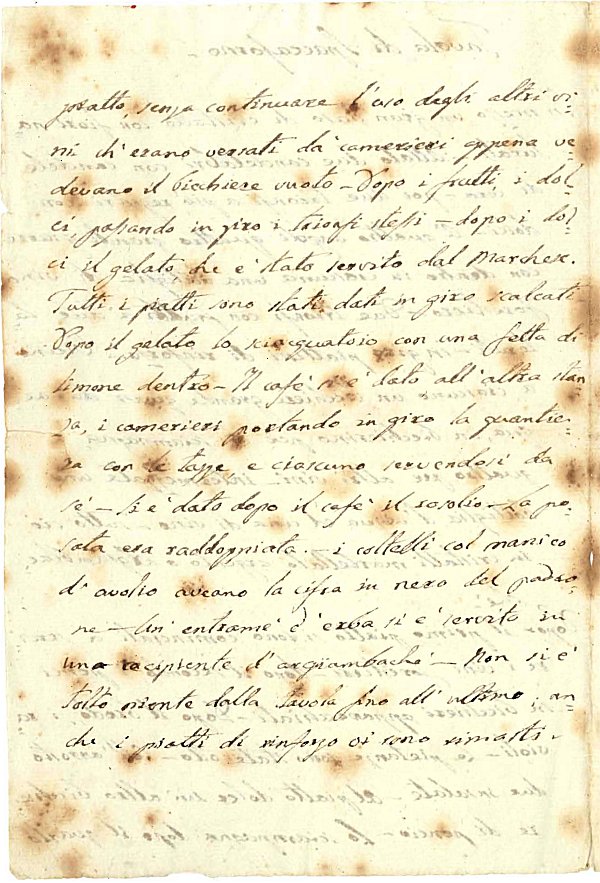 piatto, senza continuare l'uso degli altri vi=
ni ch'erano versati da' camerieri appena ve=
devano il bicchiere vuoto – Dopo i frutti, i dol=
ci, passando in giro i trionfi stessi – dopo i dol=
ci il gelato, che è stato servito dal Marchese.
Tutti i piatti sono stati dati in giro scalcati –
Dopo il gelato lo sciacquatoio con una fetta di
limone dentro – Il cafè si è dato all'altra stan=
za, i camerieri portando in giro la guantie=
ra con le tazze, e ciascuno servendosi da
sé – Si è dato dopo il cafè il rosolio – La po=
sata era raddoppiata. – i coltelli col manico
d'avolio aveano la cifra in nero del padro=
ne – Un'entramé d'erba si è servito in
una recipiente d'argiambaché – Non si è
tolto niente dalla tavola fino all'ultimo; an=
che i piatti di rinforzo vi sono rimasti –